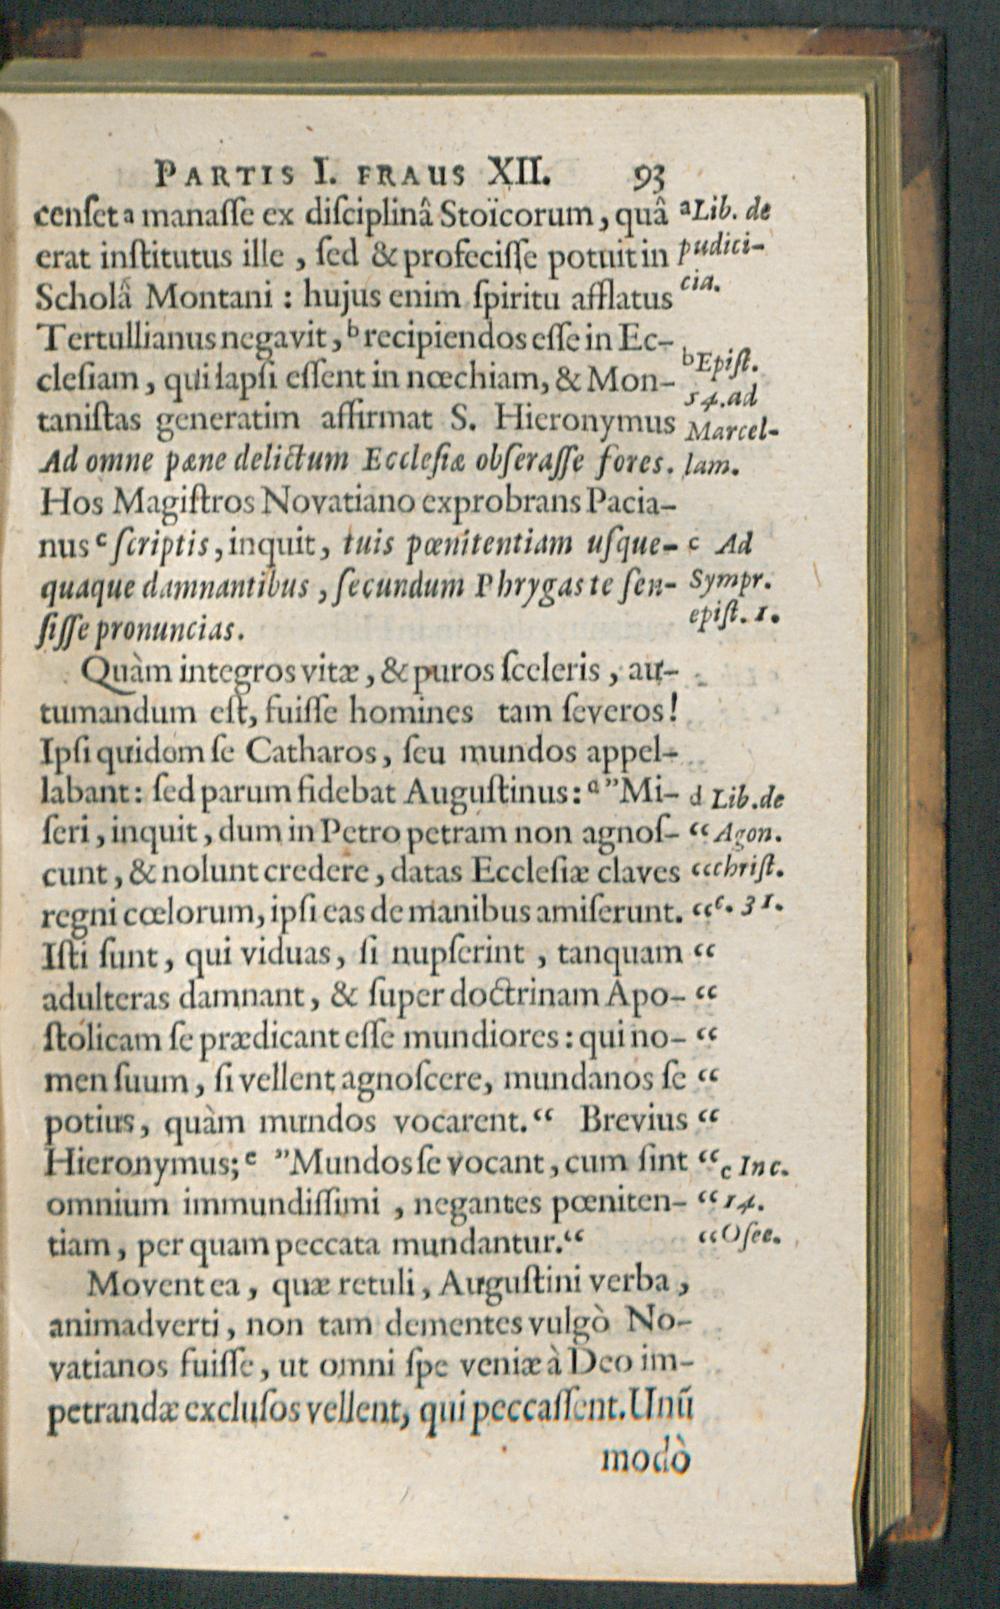 PARTIS I. FRAUS XII. 93
censet a manasſe ex diſciplinâ Stoïcorum, quâ
erat inſtitutus ille, ſed & profeciſſe potuit in
Scholâ Montani : hujus enim ſpiritu afflatus
Tertullianus negavit, b recipiendos eſſe in Ec-
cleſiam, qui lapſi eſſent in nœchiam, & Mon-
taniſtas generatim affirmat S. Hieronymus
Ad omne pæne delictum Eccleſiæ obſeraſſe fores.
Hos Magiſtros Novatiano exprobrans Pacia-
nus c ſcriptis, inquit, tuis pœnitentiam uſque-
quaque damnantibus, ſecundum Phrygas te ſen-
ſiſſe pronuncias.
Quàm integros vitæ, & puros ſceleris, au-
tumandum eſt, fuiſſe homines tam ſeveros!
Ipſi quidem ſe Catharos, ſeu mundos appel-
labant: ſed parum fidebat Auguſtinus: d ”Mi-
ſeri, inquit, dum in Petro petram non agnoſ- “
cunt, & nolunt credere, datas Eccleſiæ claves “
regni cœlorum, ipſi eas de manibus amiſerunt. “
Iſti ſunt, qui viduas, ſi nupſerint, tanquam “
adulteras damnant, & ſuper doctrinam Apo- “
ſtolicam ſe prædicant eſſe mundiores: qui no- “
men ſuum, ſi vellent agnoſcere, mundanos ſe “
potius, quàm mundos vocarent.“ Brevius “
Hieronymus; e ”Mundos ſe vocant, cum ſint “
omnium immundiſſimi, negantes pœniten- “
tiam, per quam peccata mundantur.“ “
Movent ea, quæ retuli, Auguſtini verba,
animadverti, non tam dementes vulgò No-
vatianos fuiſſe, ut omni ſpe veniæ à Deo im-
petrandæ excluſos vellent, qui peccaſſent. Unũ
modò
a Lib. de
pudici-
cia.
b Epiſt.
54. ad
Marcel-
lam.
c Ad
Sympr.
epiſt. 1.
d Lib. de
Agon.
chriſt.
c. 31.
e In c.
14.
Oſee.